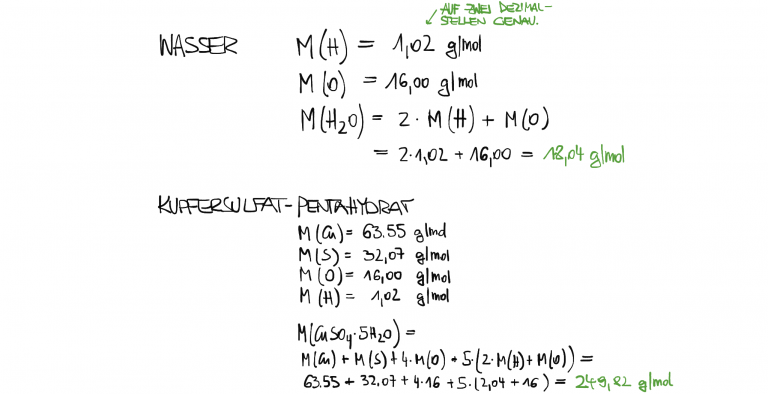 AUF ZWEI DEZIMAL-
STELLEN GENAU.
WASSER M(H) = 1,02 g/mol
M(O) = 16,00 g/mol
M(H₂O) = 2 · M(H) + M(O)
= 2·1,02 + 16,00 = 18,04 g/mol
KUPFERSULFAT-PENTAHYDRAT
M(Cu) = 63.55 g/mol
M(S) = 32,07 g/mol
M(O) = 16,00 g/mol
M(H) = 1,02 g/mol
M(CuSO₄·5H₂O) =
M(Cu) + M(S) + 4·M(O) + 5·(2·M(H) + M(O)) =
63.55 + 32,07 + 4·16 + 5·(2,04 + 16) = 249,82 g/mol